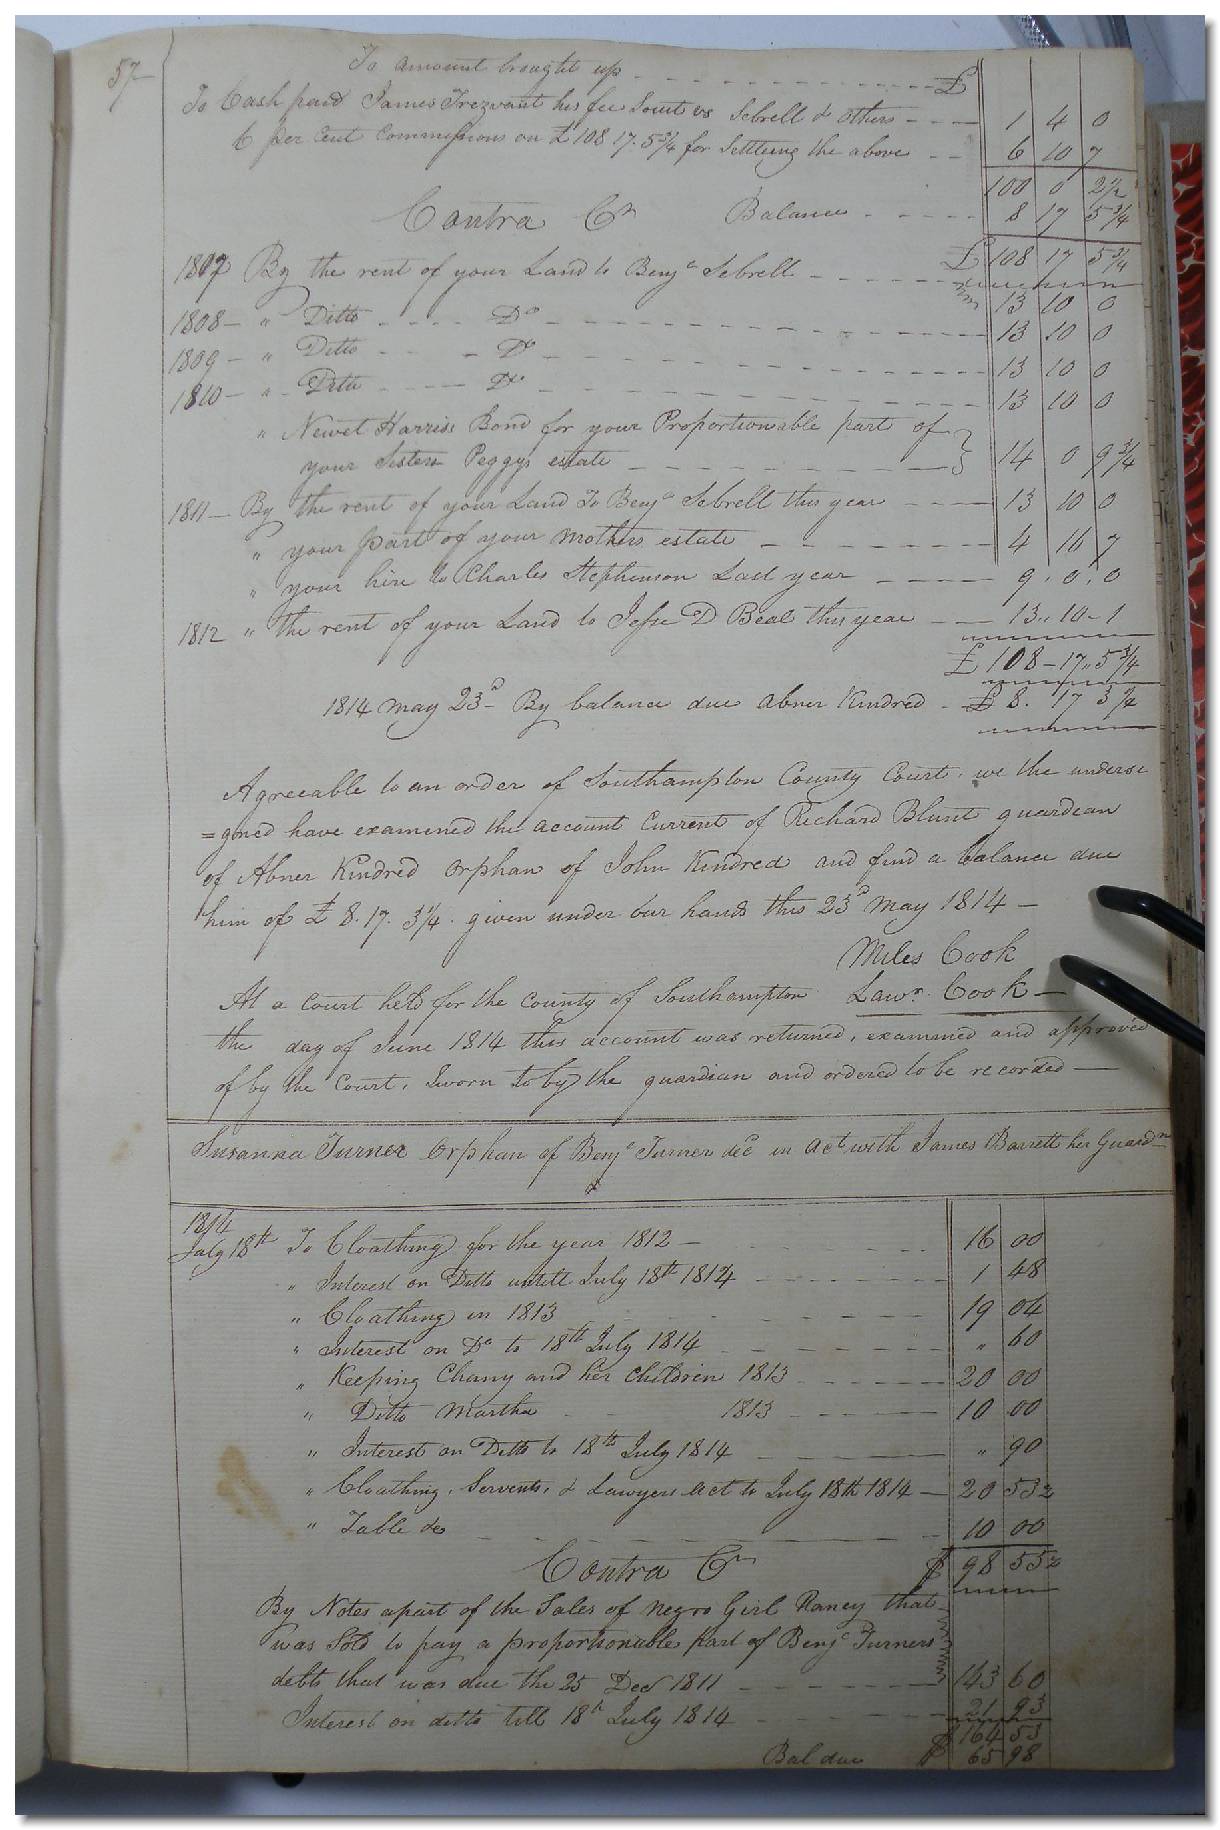 57
To amount brought up - - - £
To Cash paid James Trezvant his fee Suit vs Sebrell & others - - - 1 4 0
6 per Cent Commissions on £108.17.5¾ for Settling the above - - 6 10 7
100 0 2½
Contra Cr Balance - - - 8 17 5¾
£ 108 17 5¾
1807 By the rent of your Land to Benja Sebrell - - - 13 10 0
1808 - " Ditto - - - Do - - - 13 10 0
1809 - " Ditto - - - Do - - - 13 10 0
1810 - " Ditto - - - Do - - - 13 10 0
" Newet Harriss Bond for your Proportionable part of
your Sisters Peggys estate - - - 14 0 9¾
1811 - By the rent of your Land To Benja Sebrell this year - - - 13 10 0
" your part of your Mothers estate - - - 4 16 7
" your hire to Charles Stephenson Last year - - - 9 . 0 . 0
1812 " the rent of your Land to Jesse D Beal this year - - 13 .. 10 - 1
£ 108 - 17 .. 5¾
1814 May 23d - By balance due Abner Kindred - £ 8 . 17 3¼
Agreeable to an order of Southampton County Court, we the undersi
=gned have examined the account Current of Richard Blunt guardean
of Abner Kindred orphan of John Kindred and find a balance due
him of £ 8. 17. 3¼. given under our hands this 23d May 1814 -
Miles Cook
At a Court held for the County of Southampton Lawr. Cook -
the day of June 1814 this account was returned, examined and approved
of by the Court, Sworn to by the guardian and ordered to be recorded -
Susanna Turner Orphan of Benja Turner decd in act with James Barrett her Guardn
1814
July 18th To Cloathing for the year 1812 - - - 16 00
" Interest on Ditto untill July 18th 1814 - - - 1 48
" Cloathing in 1813 - - - 19 04
" Interest on Do to 18th July 1814 - - - " 60
" Keeping Chany and her Children 1813 - - - 20 00
" Ditto Martha - 1813 - - - 10 00
" Interest on Ditto to 18th July 1814 - - - " 90
" Cloathing, Servents, & Lawyers act to July 18th 1814 - 20 53½
" Table do - - - 10 00
Contra Cr $ 98 55½
By Notes apart of the Sales of Negro Girl Raney that
was Sold to pay a proportionable part of Benja Turners
debts that was due the 25 Decr 1811 - - - 143 60
Interest on ditto till 18th July 1814 - - - 21 93
$ 164 53
Bal due $ 65 98